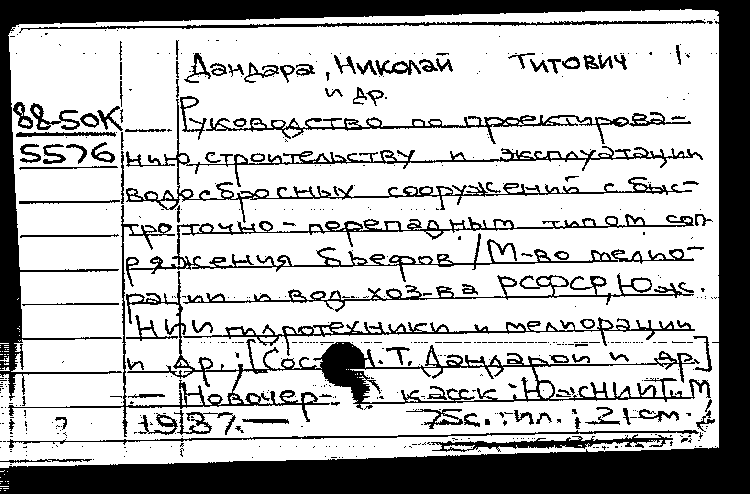 Дандара, Николай Титович 1.
и др.
88-50К Руководство по проектирова-
5576 нию, строительству и эксплуатации
водосбросных сооружений с быс-
троточно-перепадным типом соп-
ряжения бьефов / М-во мелио-
рации и вод. хоз-ва РСФСР, Юж.
НИИ гидротехники и мелиорации
и др.; [Сост. Н.Т. Дандарой и др.]
— Новочер- касск : ЮжНИИГиМ
1987. — 75с. : ил. ; 21см.